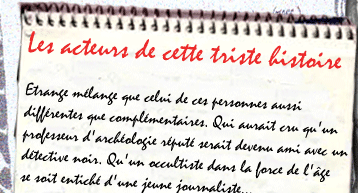 Les acteurs de cette triste histoire
Etrange mélange que celui de ces personnes aussi
différentes que complémentaires. Qui aurait cru qu'un
professeur d'archéologie réputé serait devenu ami avec un
détective noir. Qu'un occultiste dans la force de l'âge
se soit entiché d'une jeune journaliste...